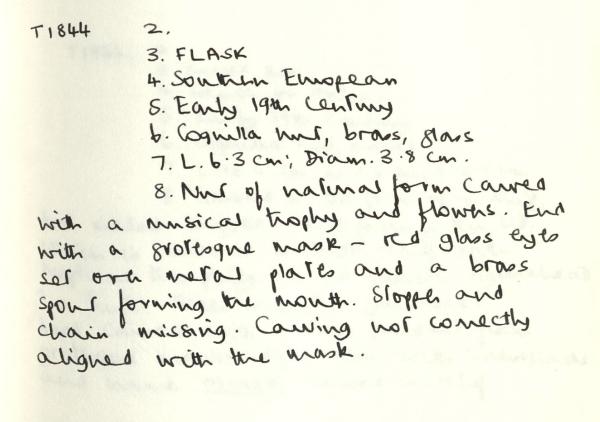 T1844 2.
3. FLASK
4. Southern European
5. Early 19th Century
6. Coquilla nut, brass, glass
7. L. 6·3 cm; Diam. 3·8 cm.
8. Nut of natural form carved
with a musical trophy and flowers. End
with a grotesque mask – red glass eyes
set over metal plates and a brass
spout forming the mouth. Stopper and
chain missing. Carving not correctly
aligned with the mask.